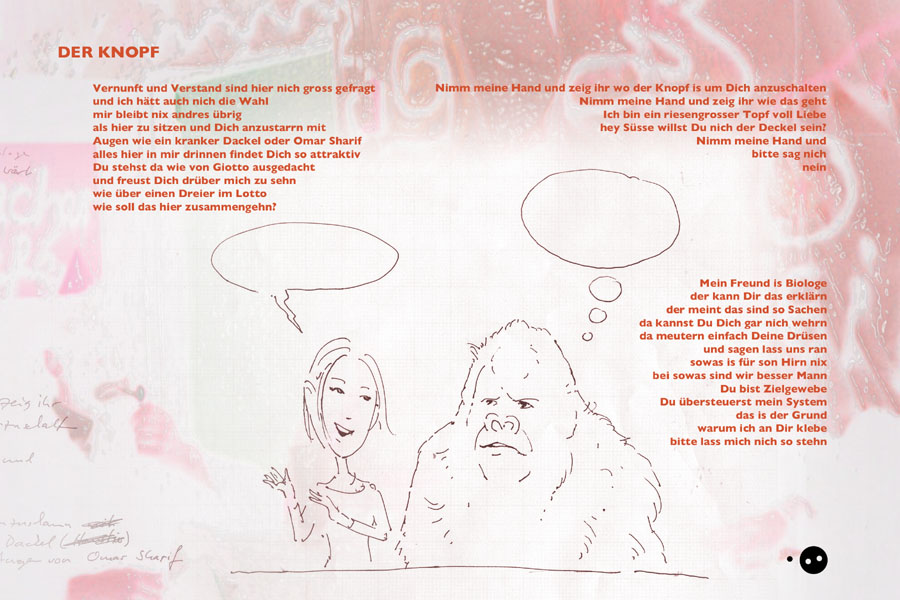 DER KNOPF
Vernunft und Verstand sind hier nich gross gefragt
und ich hätt auch nich die Wahl
mir bleibt nix andres übrig
als hier zu sitzen und Dich anzustarrn mit
Augen wie ein kranker Dackel oder Omar Sharif
alles hier in mir drinnen findet Dich so attraktiv
Du stehst da wie von Giotto ausgedacht
und freust Dich drüber mich zu sehn
wie über einen Dreier im Lotto
wie soll das hier zusammengehn?
Nimm meine Hand und zeig ihr wo der Knopf is um Dich anzuschalten
Nimm meine Hand und zeig ihr wie das geht
Ich bin ein riesengrosser Topf voll Liebe
hey Süsse willst Du nich der Deckel sein?
Nimm meine Hand und
bitte sag nich
nein
Mein Freund is Biologe
der kann Dir das erklärn
der meint das sind so Sachen
da kannst Du Dich gar nich wehrn
da meutern einfach Deine Drüsen
und sagen lass uns ran
sowas is für son Hirn nix
bei sowas sind wir besser Mann
Du bist Zielgewebe
Du übersteuerst mein System
das is der Grund
warum ich an Dir klebe
bitte lass mich nich so stehn
zeig ihr
und
Dackel
von Omar Sharif